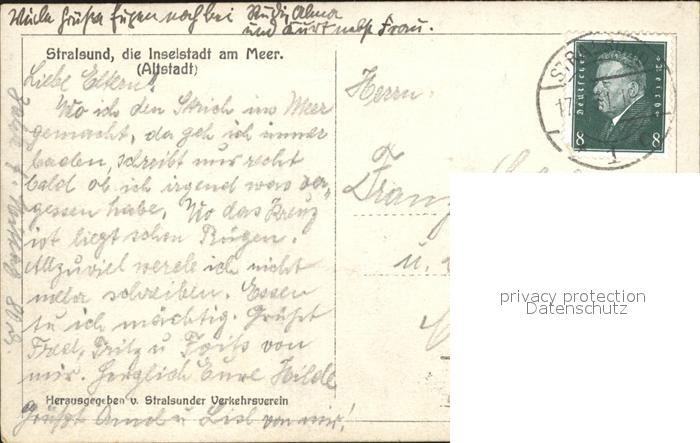 Viele Grüße Eugen noch bei Rudi, Alma
und Kurt nebst Frau.
Stralsund, die Inselstadt am Meer.
(Altstadt)
Liebe Eltern!
Wo ich den Strich ins Meer
gemacht, da geh ich immer
baden, schreibt nur recht
bald ob ich irgend was ver-
gessen habe. Wo das Kreuz
ist liegt schon Rügen.
Allzuviel werde ich nicht
mehr schreiben. Essen
tu ich mächtig. Grüßt
Fred, Fritz u von
mir. Herzlich Eure Hilde
Herausgegeben v. Stralsunder Verkehrsverein
Grüßt u Lisl von mir!
Herrn
Franz
u.
Deutsches Reich
8 8
17
privacy protection
Datenschutz